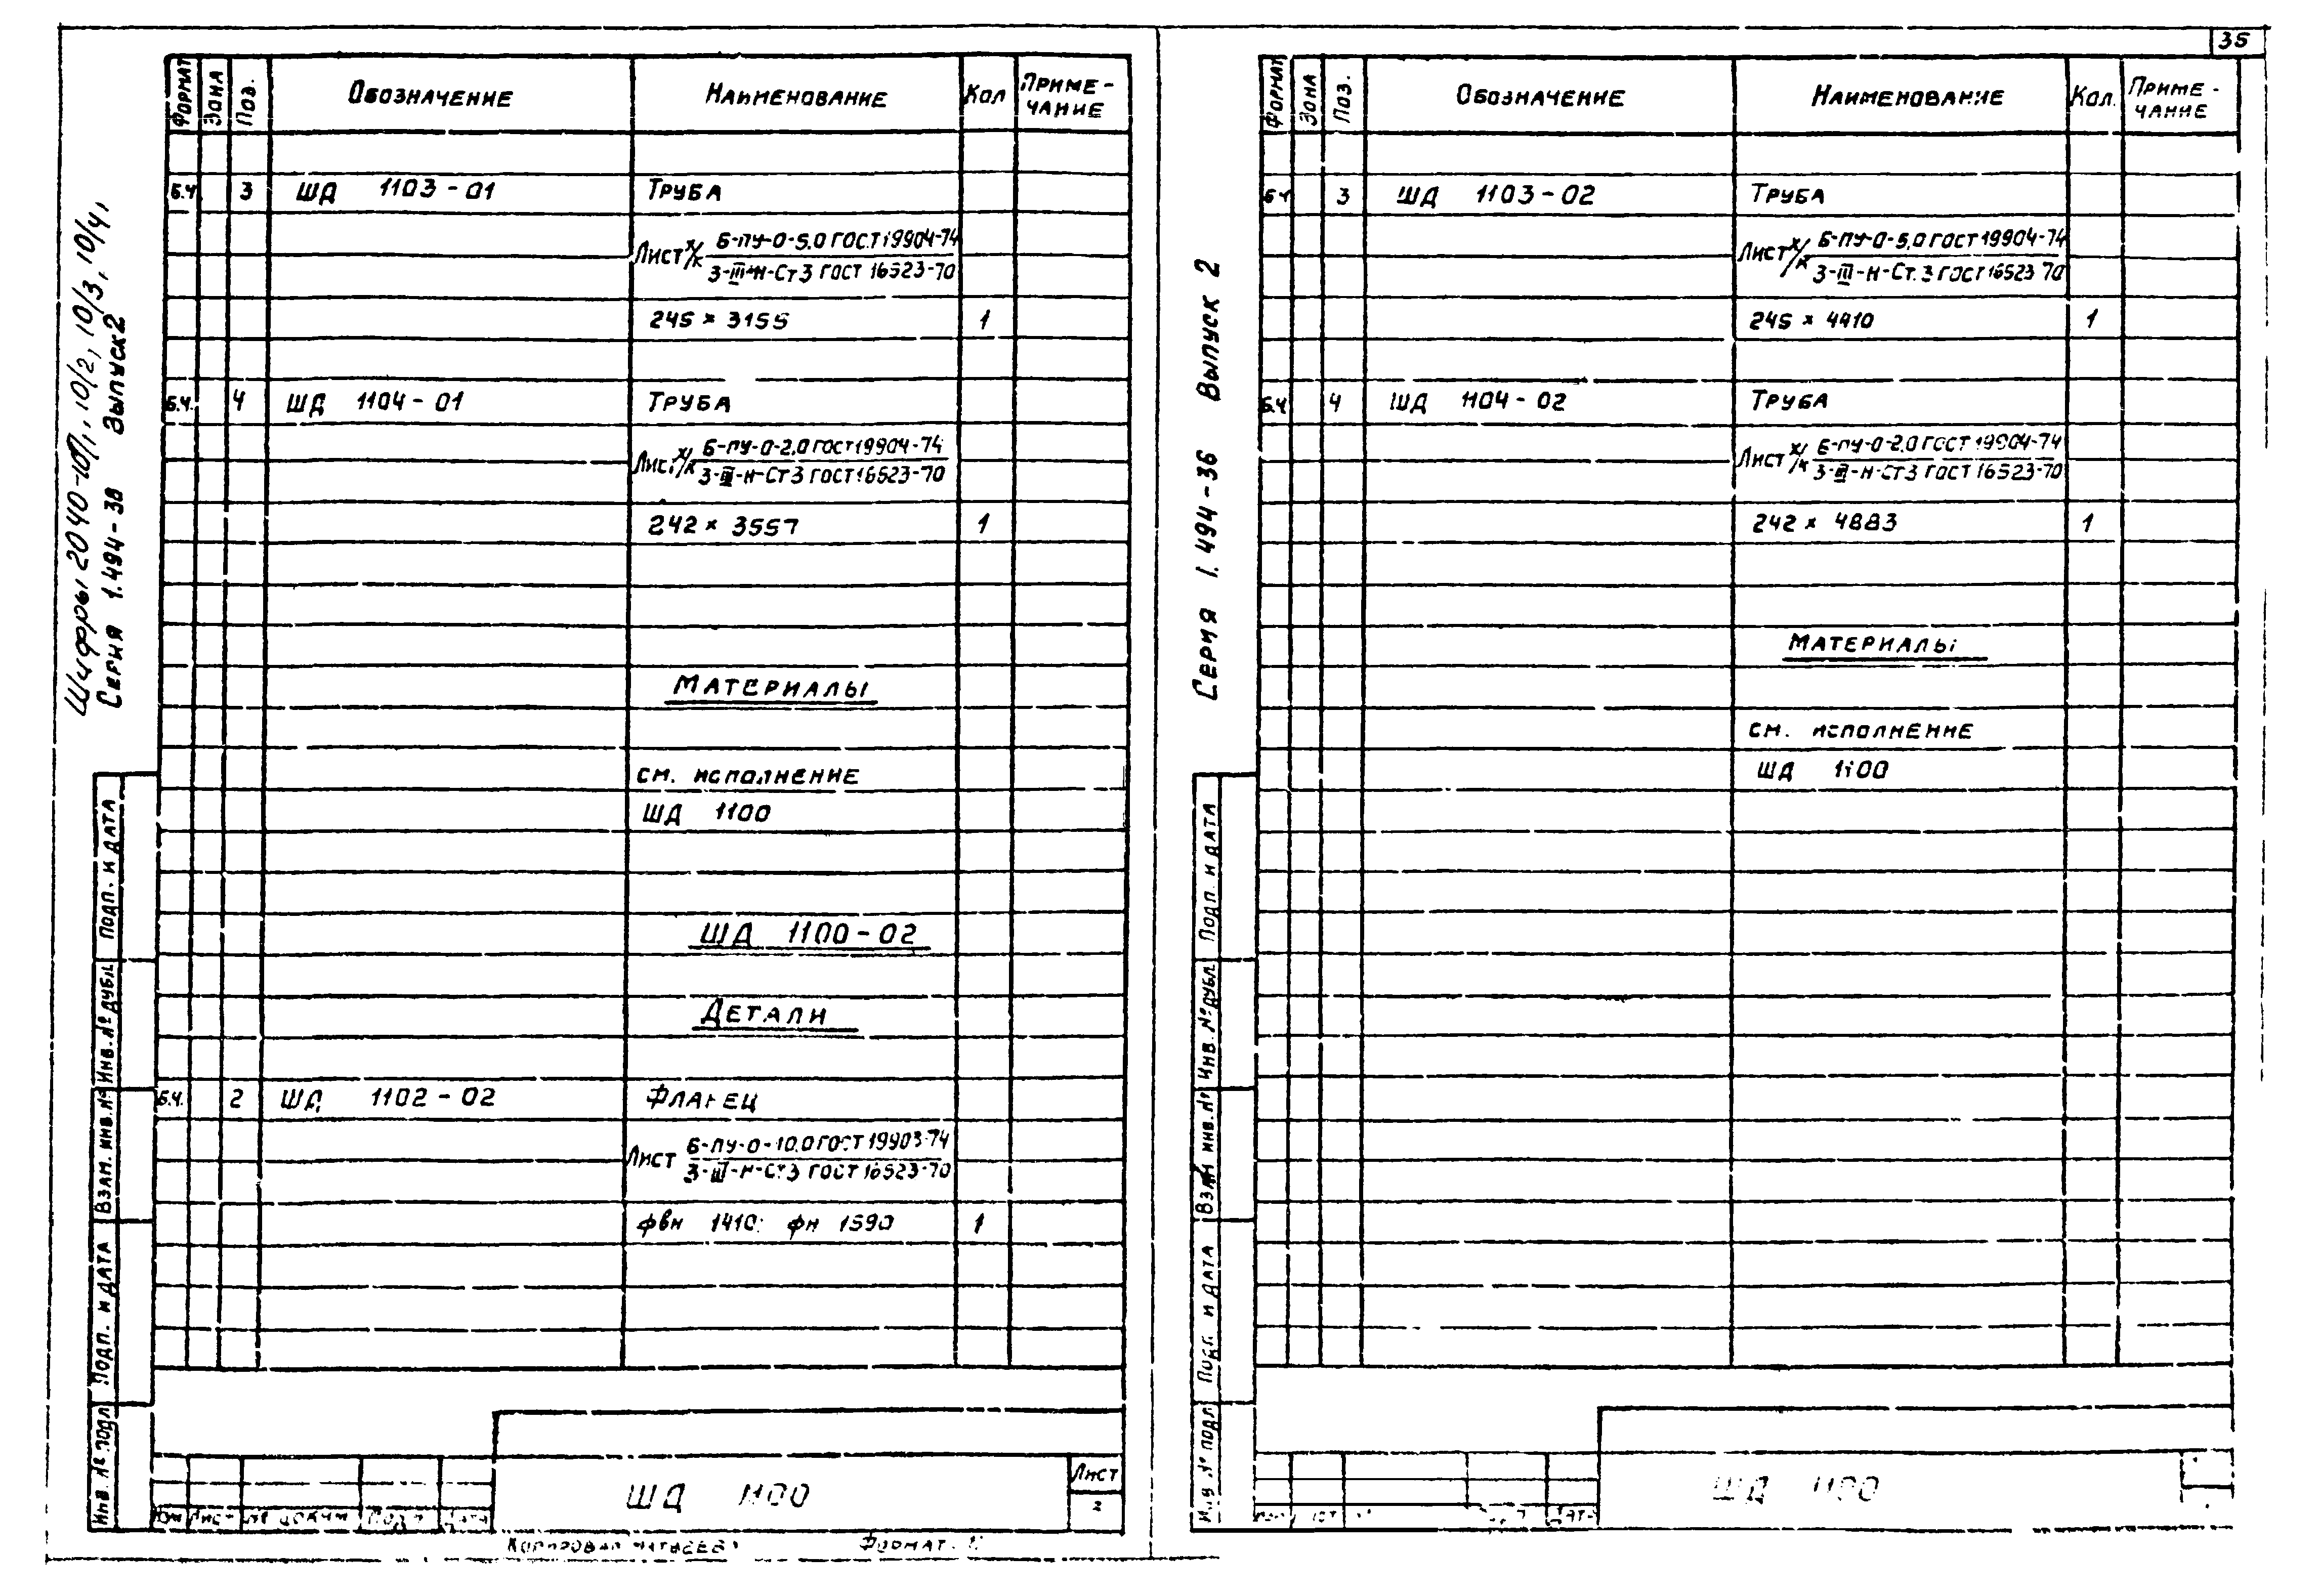 35
Шифры 2040-10/1, 10/2, 10/3, 10/4,
Серия 1.494-38 Выпуск2
Формат Зона Поз. Обозначение Наименование Кол Приме-
чание
Б.Ч 3 ШД 1103-01 Труба
Лист х/к Б-ПУ-О-5,0 ГОСТ19904-74
3-III-Н-Ст3 ГОСТ 16523-70
245 × 3155 1
Б.Ч. 4 ШД 1104-01 Труба
Лист х/к Б-ПУ-О-2,0 ГОСТ19904-74
3-III-Н-Ст3 ГОСТ16523-70
242 × 3557 1
Материалы
см. исполнение
ШД 1100
ШД 1100-02
Детали
Б.Ч. 2 ШД 1102-02 Фланец
Лист Б-ПУ-О-10,0 ГОСТ 19903-74
3-III-Н-Ст3 ГОСТ 16523-70
фвн 1410; фн 1590 1
Подп. и дата
Инв. № дубл
Взам. инв. №
Подп. и дата
Инв. № подл
Изм Лист № докум Подп Дата
ШД 1100
Лист
2
Копировал Матвеева Формат
Серия 1.494-36 Выпуск 2
Формат Зона Поз. Обозначение Наименование Кол. Приме-
чание
БЧ 3 ШД 1103-02 Труба
Лист х/к Б-ПУ-О-5,0 ГОСТ 19904-74
3-III-Н-Ст.3 ГОСТ16523 70
245 × 4410 1
Б.Ч 4 ШД 1104-02 Труба
Лист х/к Б-ПУ-О-2,0 ГОСТ 19904-74
3-III-Н-Ст3 ГОСТ 16523-70
242 × 4883 1
Материалы
см. исполнение
ШД 1100
Подп. и дата
Инв. № дубл
Взам инв. №
Подп. и дата
Инв № подл
Дата
ШД 1100